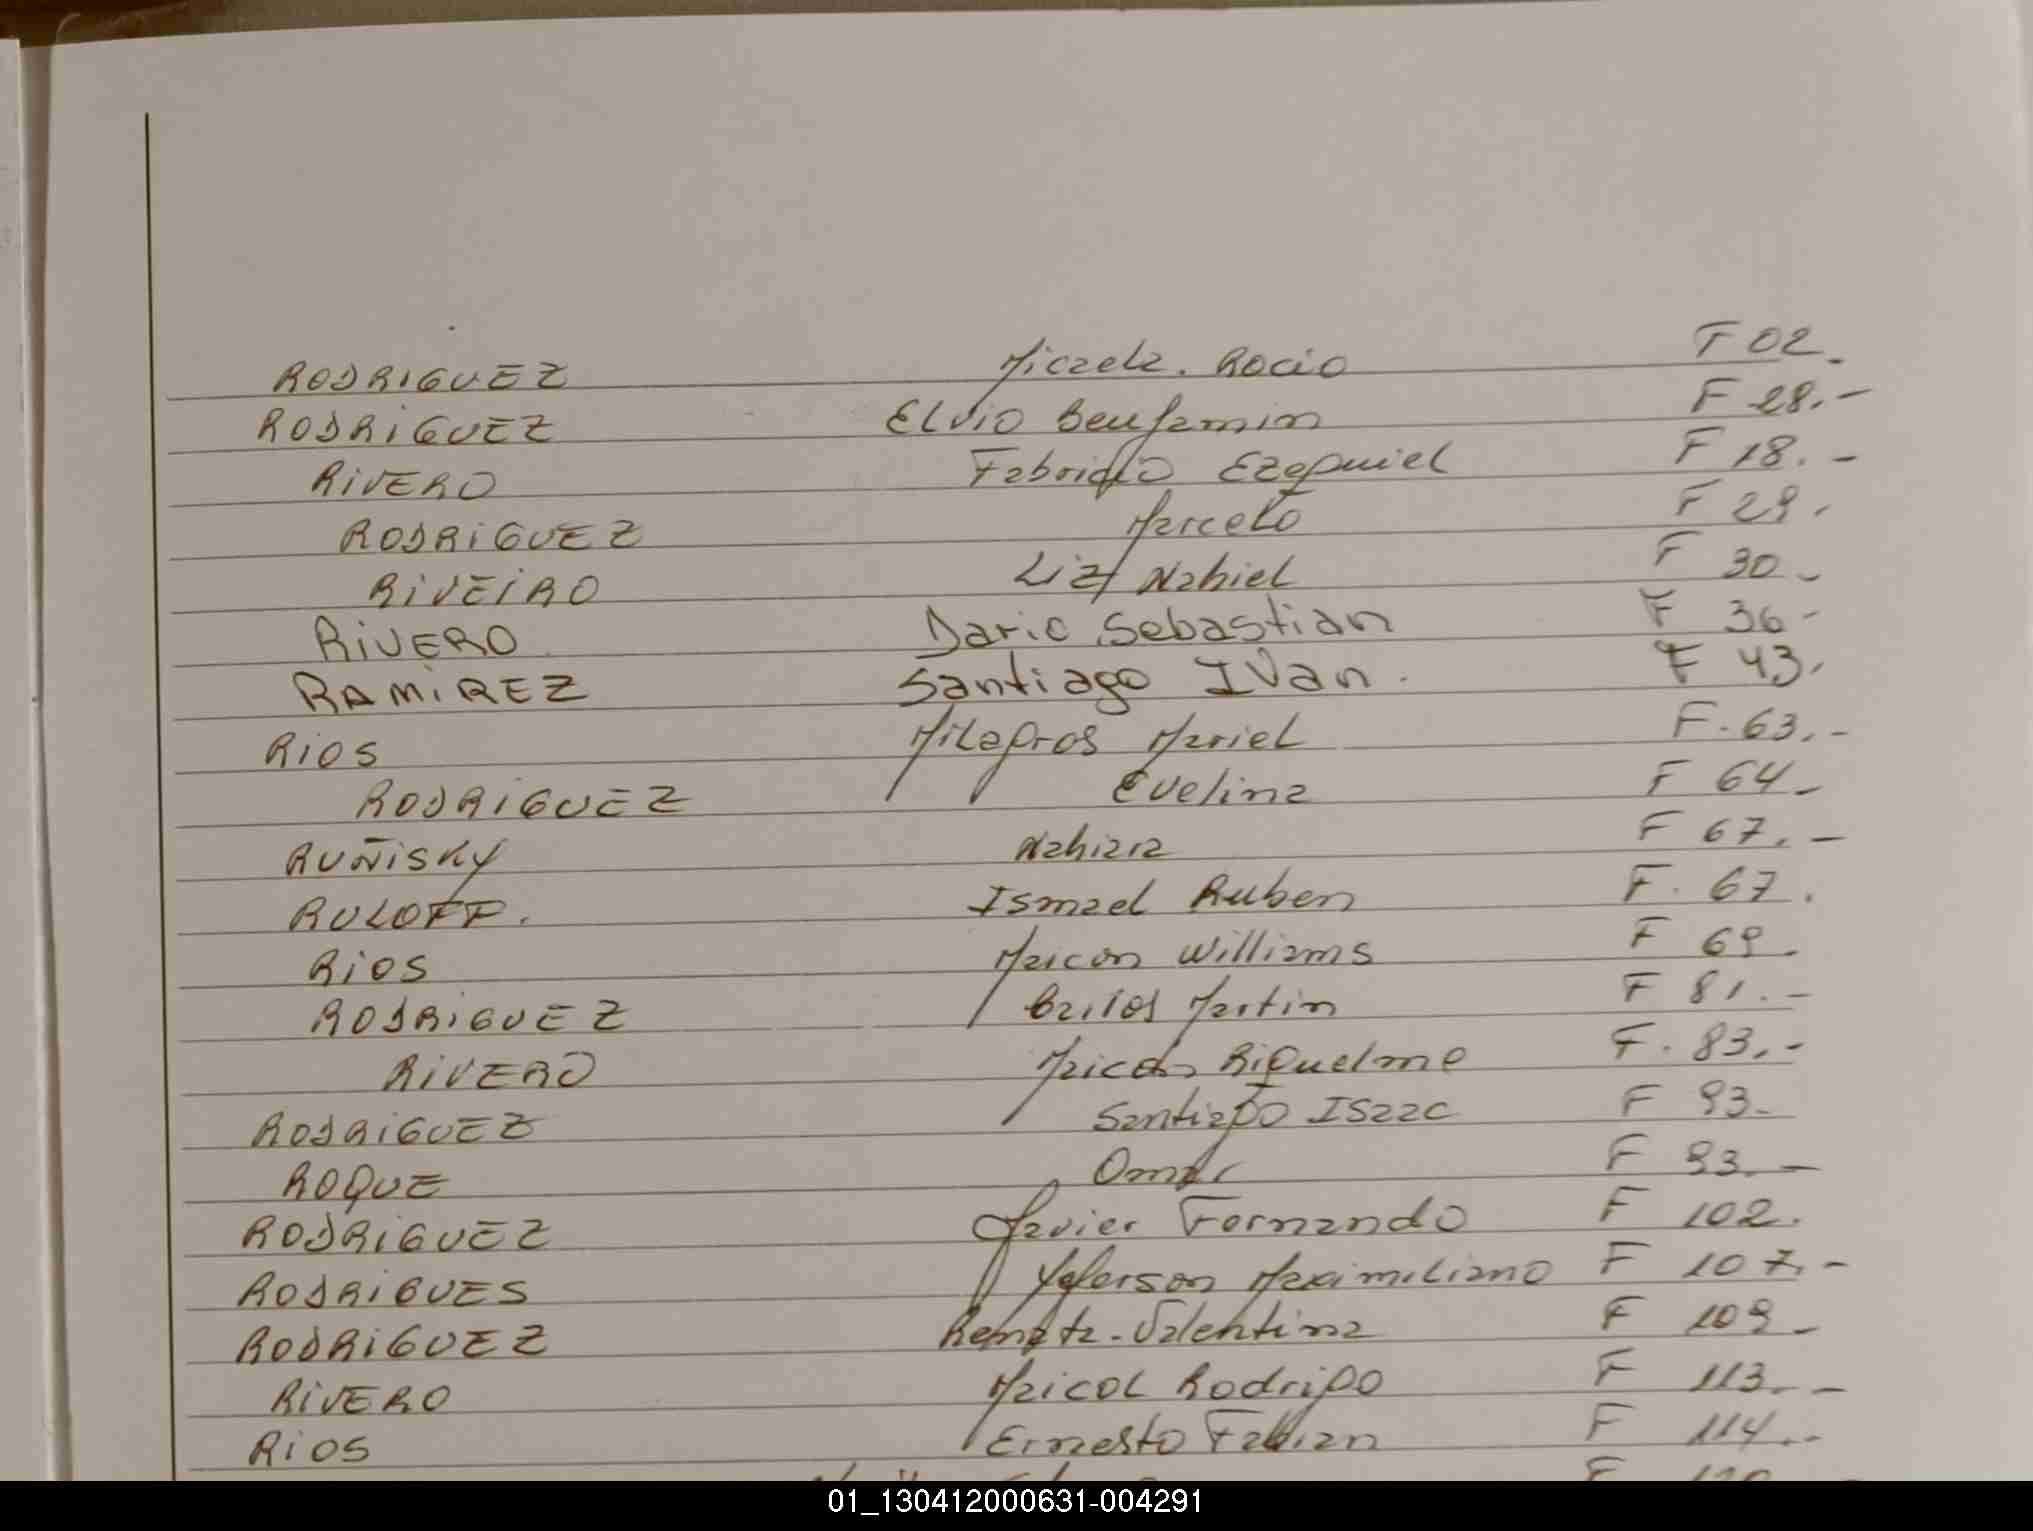 RODRIGUEZ Micaela. Rocio F 02.
RODRIGUEZ Elvio Benjamin F 28.-
RIVERO Fabricio Ezequiel F 18.-
RODRIGUEZ Marcelo F 29.
RIVEIRO Liz Nahiel F 30.
RIVERO Dario Sebastian F 36-
RAMIREZ Santiago Ivan. F 43.
RIOS Milagros Mariel F. 63.-
RODRIGUEZ Evelina F 64-
RUÑISKY Nahiara F 67.-
RULOFF. Ismael Ruben F. 67.
RIOS Maicon Williams F 69.
RODRIGUEZ Carlos Martin F 81.-
RIVERO Maicon Riquelme F. 83.-
RODRIGUEZ Santiago Isaac F 93-
ROQUE Omar F 93.-
RODRIGUEZ Javier Fernando F 102.
RODRIGUES Yeferson Maximiliano F 107.-
RODRIGUEZ Renata-Valentina F 109-
RIVERO Maicol Rodrigo F 113.-
RIOS Ernesto Fabian F 114.-
01_130412000631-004291